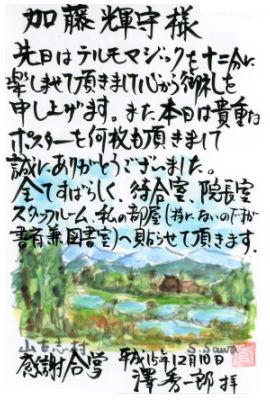 加藤輝守様
先日はテルモマジックを十二分に
楽しませて頂きまして心から御礼を
申し上げます。また本日は貴重な
ポスターを何枚も頂きまして
誠にありがとうございました。
全てすばらしく、待合室、院長室
スタッフルーム、私の部屋(特にないのですが
書斎兼図書室)へ貼らせて頂きます。
山古志村
S. Sawa
感謝合掌
平成15年12月10日
澤秀一郎拝